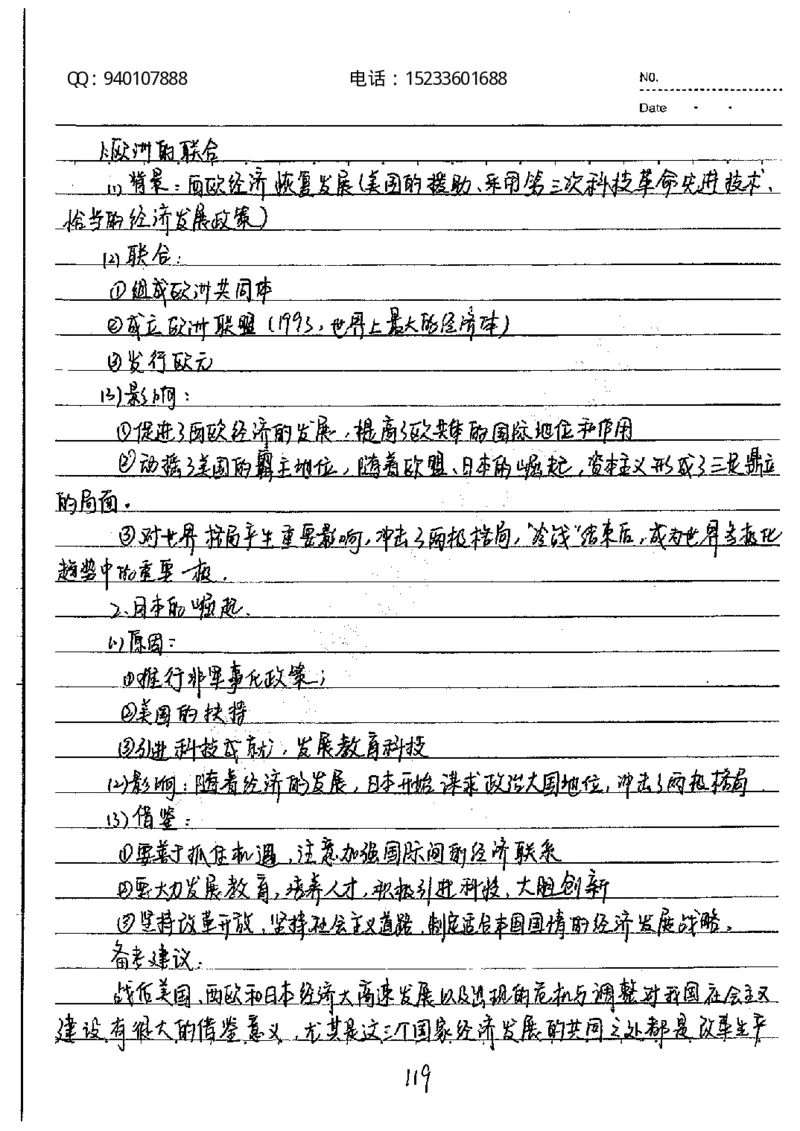 QQ：940107888 电话：15233601688 NO.
Date
1.欧洲的联合
(1)背景：西欧经济恢复发展(美国的援助、采用第三次科技革命先进技术、
恰当的经济发展政策)
(2)联合：
①组成欧洲共同体
②成立欧洲联盟(1993，世界上最大的经济体)
③发行欧元
(3)影响：
①促进了西欧经济的发展，提高了欧共体的国际地位和作用
②动摇了美国的霸主地位，随着欧盟、日本的崛起，资本主义形成了三足鼎立
的局面。
③对世界格局产生重要影响，冲击了两极格局，“冷战”结束后，成为世界多极化
趋势中的重要一极.
2.日本的崛起.
(1)原因：
①推行非军事化政策；
②美国的扶持
③引进科技成就，发展教育科技
(2)影响：随着经济的发展，日本开始谋求政治大国地位，冲击了两极格局.
(3)借鉴：
①要善于抓住机遇，注意加强国际间的经济联系
②要大力发展教育，培养人才，积极引进科技，大胆创新
③坚持改革开放，坚持社会主义道路，制定适合本国国情的经济发展战略。
备考建议：
战后美国、西欧和日本经济大高速发展以及出现的危机与调整对我国社会主义
建设有很大的借鉴意义，尤其是这三个国家经济发展的共同之处都是改革生产
119